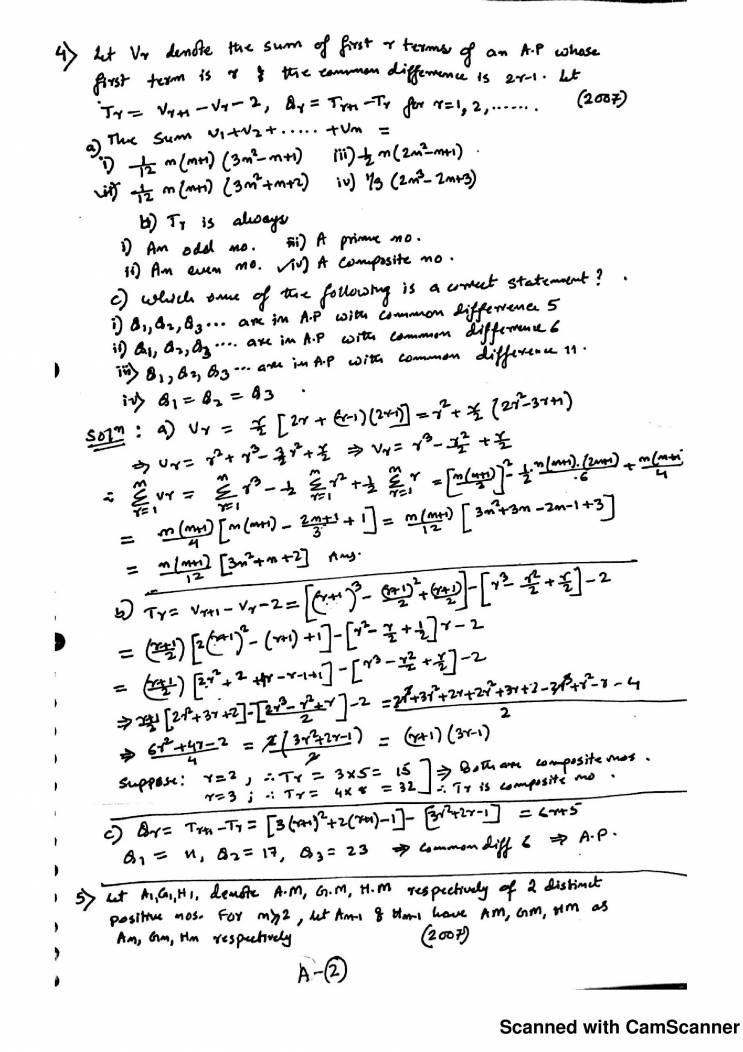 4) Let Vr denote the sum of first r terms of an A.P whose
first term is r & the common difference is 2r-1. Let
Tr = Vr+1 - Vr - 2, Qr = Tr+1 - Tr for r=1, 2, ....... (2007)
a) The sum V1+V2+ ..... +Vn =
i) 1/12 n(n+1) (3n²-n+1) iii) 1/2 n(2n²-n+1)
ii) 1/12 n(n+1) (3n²+n+2) iv) 1/3 (2n³-2n+3)
b) Tr is always
i) An odd no. iii) A prime no.
ii) An even no. ✓iv) A composite no.
c) which one of the following is a correct statement?
i) Q1, Q2, Q3 ... are in A.P with common difference 5
ii) Q1, Q2, Q3 .... are in A.P with common difference 6
iii) Q1, Q2, Q3 ... are in A.P with common difference 11.
iv) Q1 = Q2 = Q3
Solⁿ : a) Vr = r/2 [2r + (r-1)(2r-1)] = r² + r/2 (2r²-3r+1)
⇒ Vr = r² + r³ - 3/2 r² + r/2 ⇒ Vr = r³ - r²/2 + r/2
∴ n Σ r=1 Vr = n Σ r=1 r³ - 1/2 n Σ r=1 r² + 1/2 n Σ r=1 r = [n(n+1)/2]² - 1/2 n(n+1).(2n+1)/6 + n(n+1)/4
= n(n+1)/4 [n(n+1) - 2n+1/3 + 1] = n(n+1)/12 [3n²+3n-2n-1+3]
= n(n+1)/12 [3n²+n+2] Ans.
b) Tr = Vr+1 - Vr - 2 = [(r+1)³ - (r+1)²/2 + (r+1)/2] - [r³ - r²/2 + r/2] - 2
= (r+1/2) [2(r+1)² - (r+1) + 1] - [r² - r/2 + 1/2] r - 2
= (r+1/2) [2r² + 2 + 4r - r - 1 + 1] - [r³ - r²/2 + r/2] - 2
⇒ r+1/2 [2r²+3r+2] - [2r³ - r² + r/2] - 2 = 2r³+3r²+2r+2r²+3r+2-2r³+r²-r-4/2
⇒ 6r²+4r-2/4 = 2(3r²+2r-1)/2 = (r+1) (3r-1)
Suppose: r=2, ∴ Tr = 3x5 = 15 ] ⇒ Both are composite nos.
r=3 ; ∴ Tr = 4x8 = 32 ] ∴ Tr is composite no.
c) Qr = Tr+1 - Tr = [3(r+1)²+2(r+1)-1] - [3r²+2r-1] = 6r+5
Q1 = 11, Q2 = 17, Q3 = 23 ⇒ common diff 6 ⇒ A.P.
5) Let A1, G1, H1, denote A.M, G.M, H.M respectively of 2 distinct
positive nos. For n⩾2, let An-1 & Hn-1 have AM, GM, HM as
An, Gn, Hn respectively (2007)
A-(2)
Scanned with CamScanner